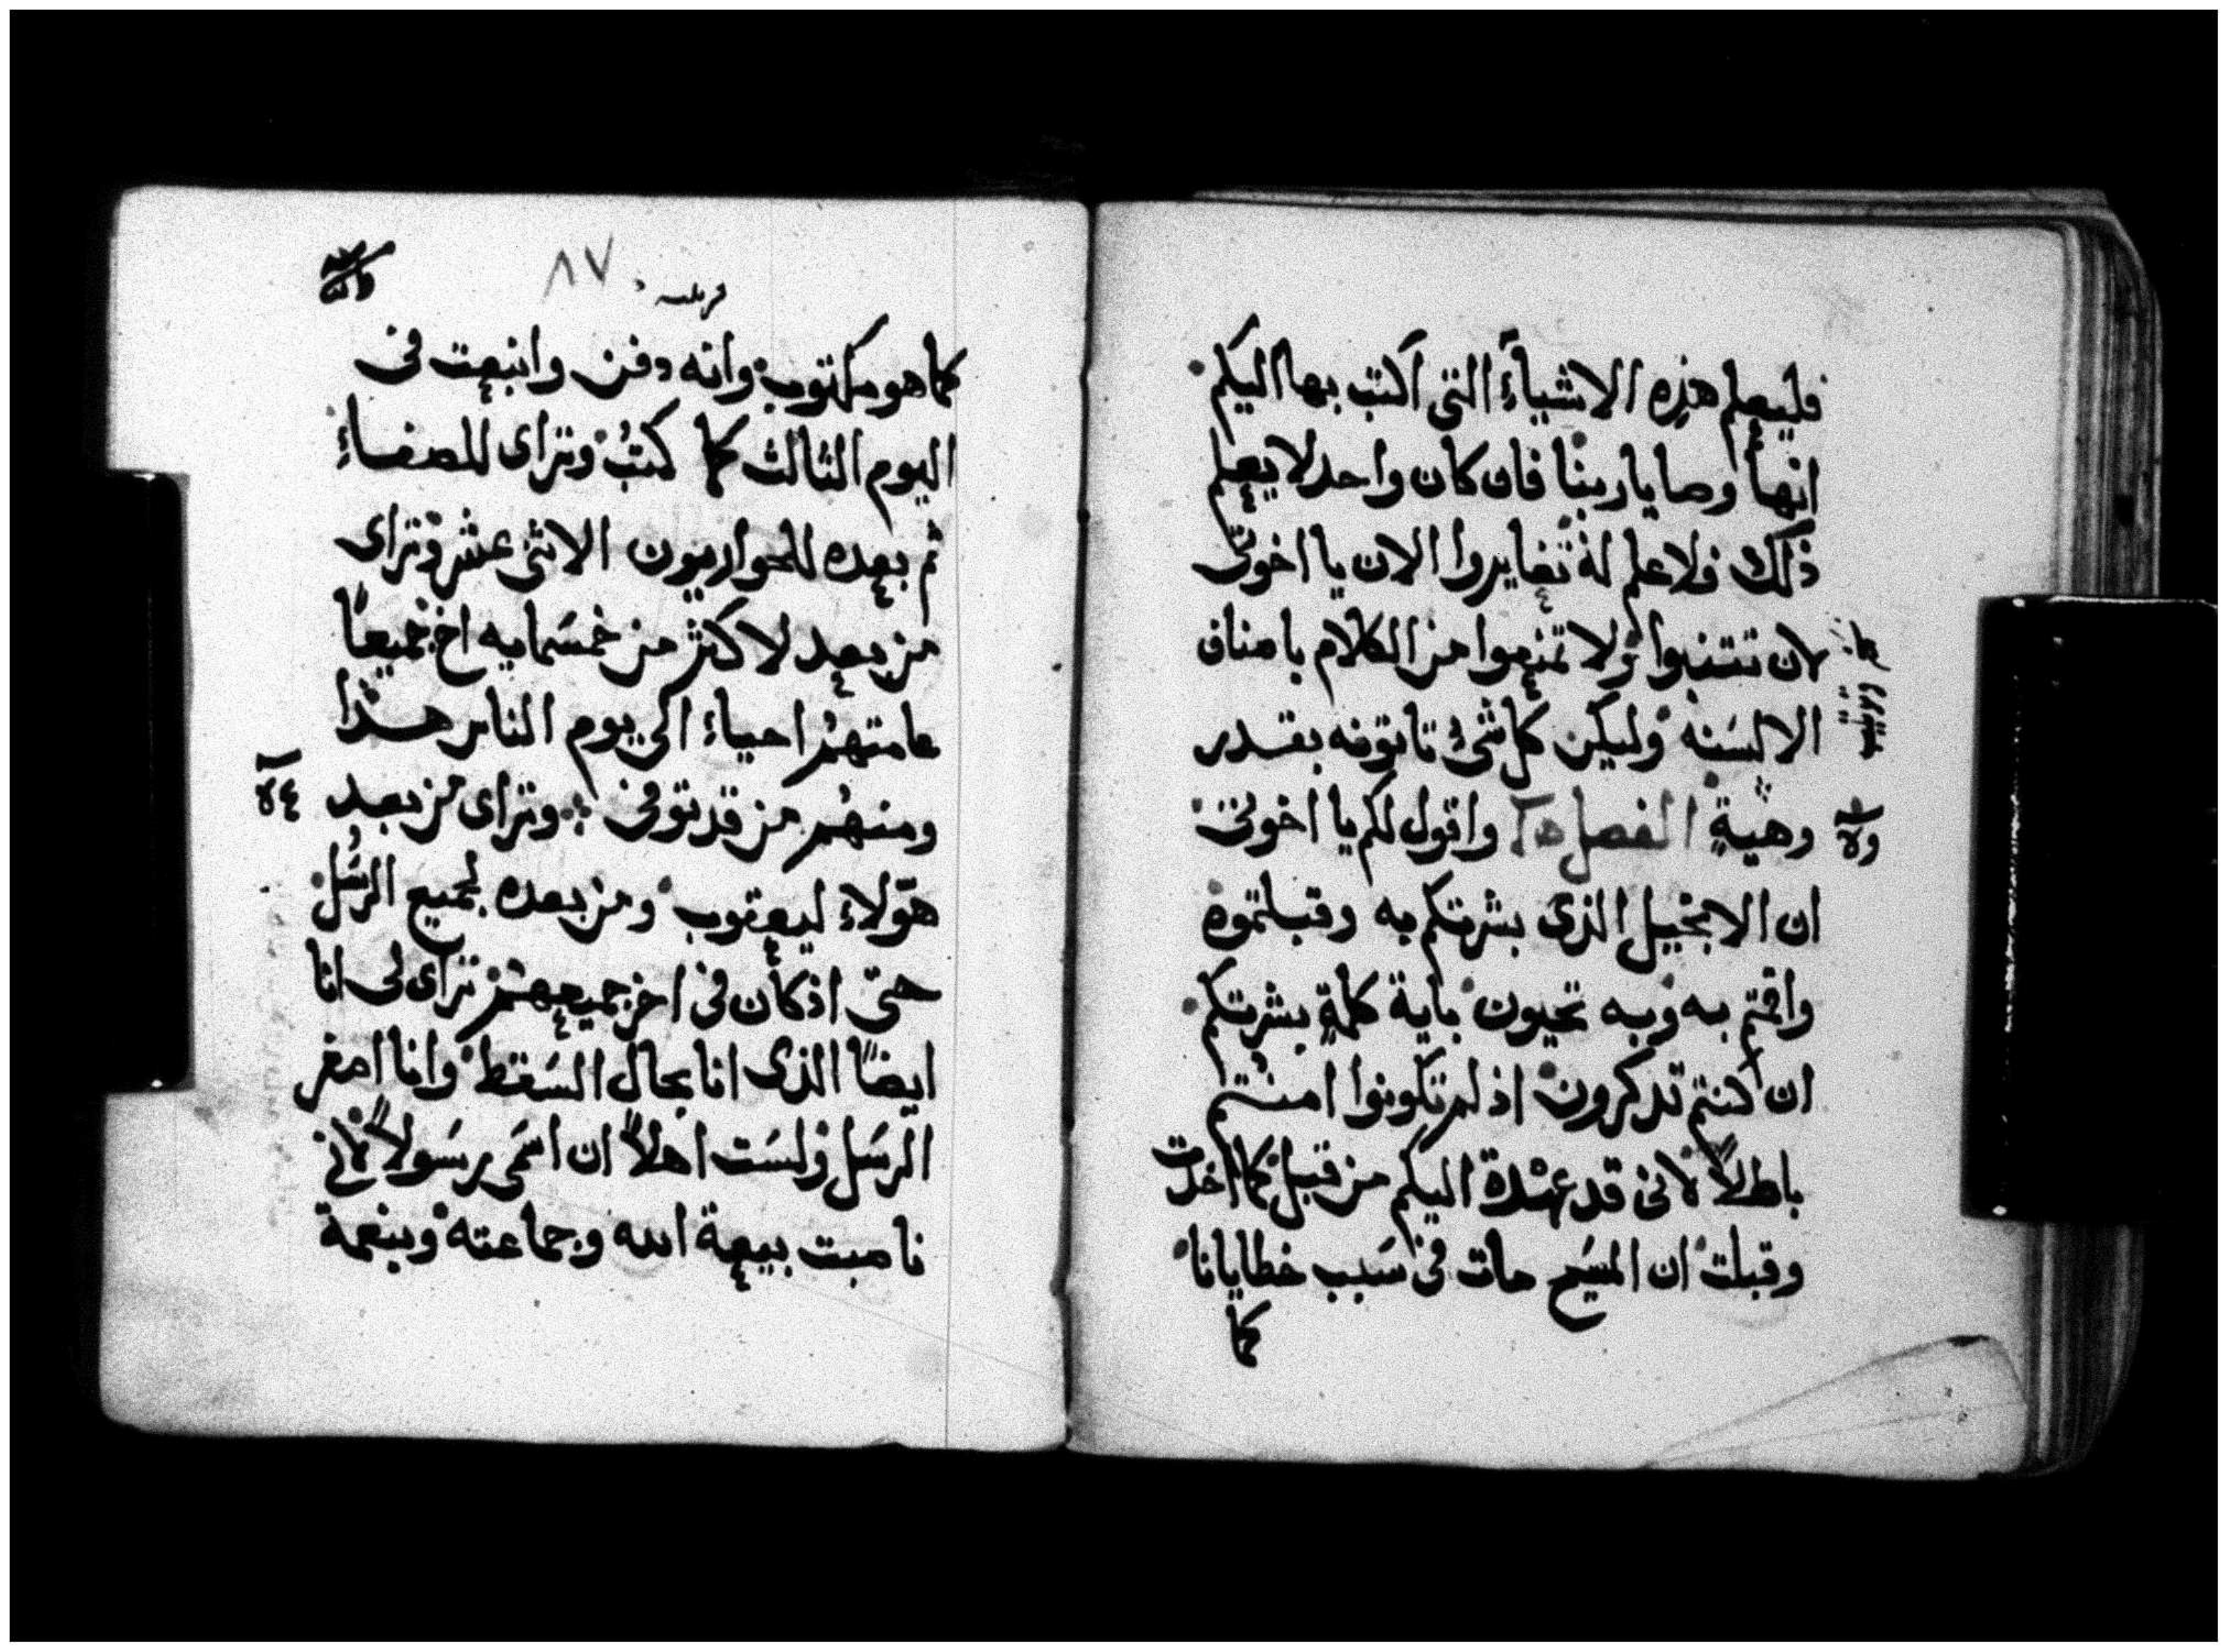 فليعلم هذه الاشياء التى اكتب بها اليكم
انها وصايا ربنا فان كان واحد لا يعلم
ذلك فلا علم له تغايروا الان يا اخوتى
لان تتنبوا ولا تمنعوا من الكلام باصناف
الالسنه وليكن كل شئ تاتونه بقدر
وهيية الفصل واقول لكم يا اخوتى
ان الانجيل الذى بشرتكم به وقبلتموه
واقمتم به وبه تحيون باية كلمة بشرتكم
ان كنتم تدكرون اذ لم تكونوا امنتم
باطلاً لانى قد عهدة اليكم من قبل كما اخدت
وقبلت ان المسيح مات فى سبب خطايانا
كما
٨٧
كما هو مكتوب وانه دفن وانبعت فى
اليوم الثالث كما كتب وتراى للصفاء
ثم بعده للحواريون الاثنى عشر وتراى
من بعد لاكثر من خمسمايه اخ جميعاً
عامتهم احياء الى يوم الناس هذا
ومنهم من قد توفى وتراى من بعد
هولاء ليعقوب ومن بعده لجميع الرسل
حتى اذ كان فى اخر جميعهم تراى لى انا
ايضاً الذى انا بحال السقط وانا اصغر
الرسل ولست اهلاً ان اسمى رسولاً لانى
ناصبت بيعة الله وجماعته وبنعمة